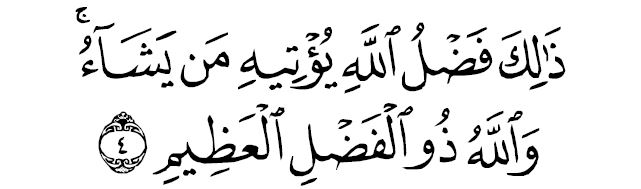 ذَٰلِكَ فَضۡلُ ٱللَّهِ يُؤۡتِيهِ مَن يَشَآءُۚ
وَٱللَّهُ ذُو ٱلۡفَضۡلِ ٱلۡعَظِيمِ ٤